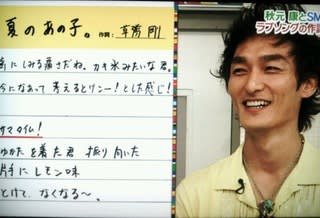 夏のあの子。 作詞:草彅剛
歯にしみる痛さだね。カキ氷みたいな君。
今になって考えるとリンー!とした感じ!
サマータイム!
ゆかたを着た君 振り向いた
片手にレモン味
とけて、なくなる〜。
秋元 康とSM
ラブソングの作詞